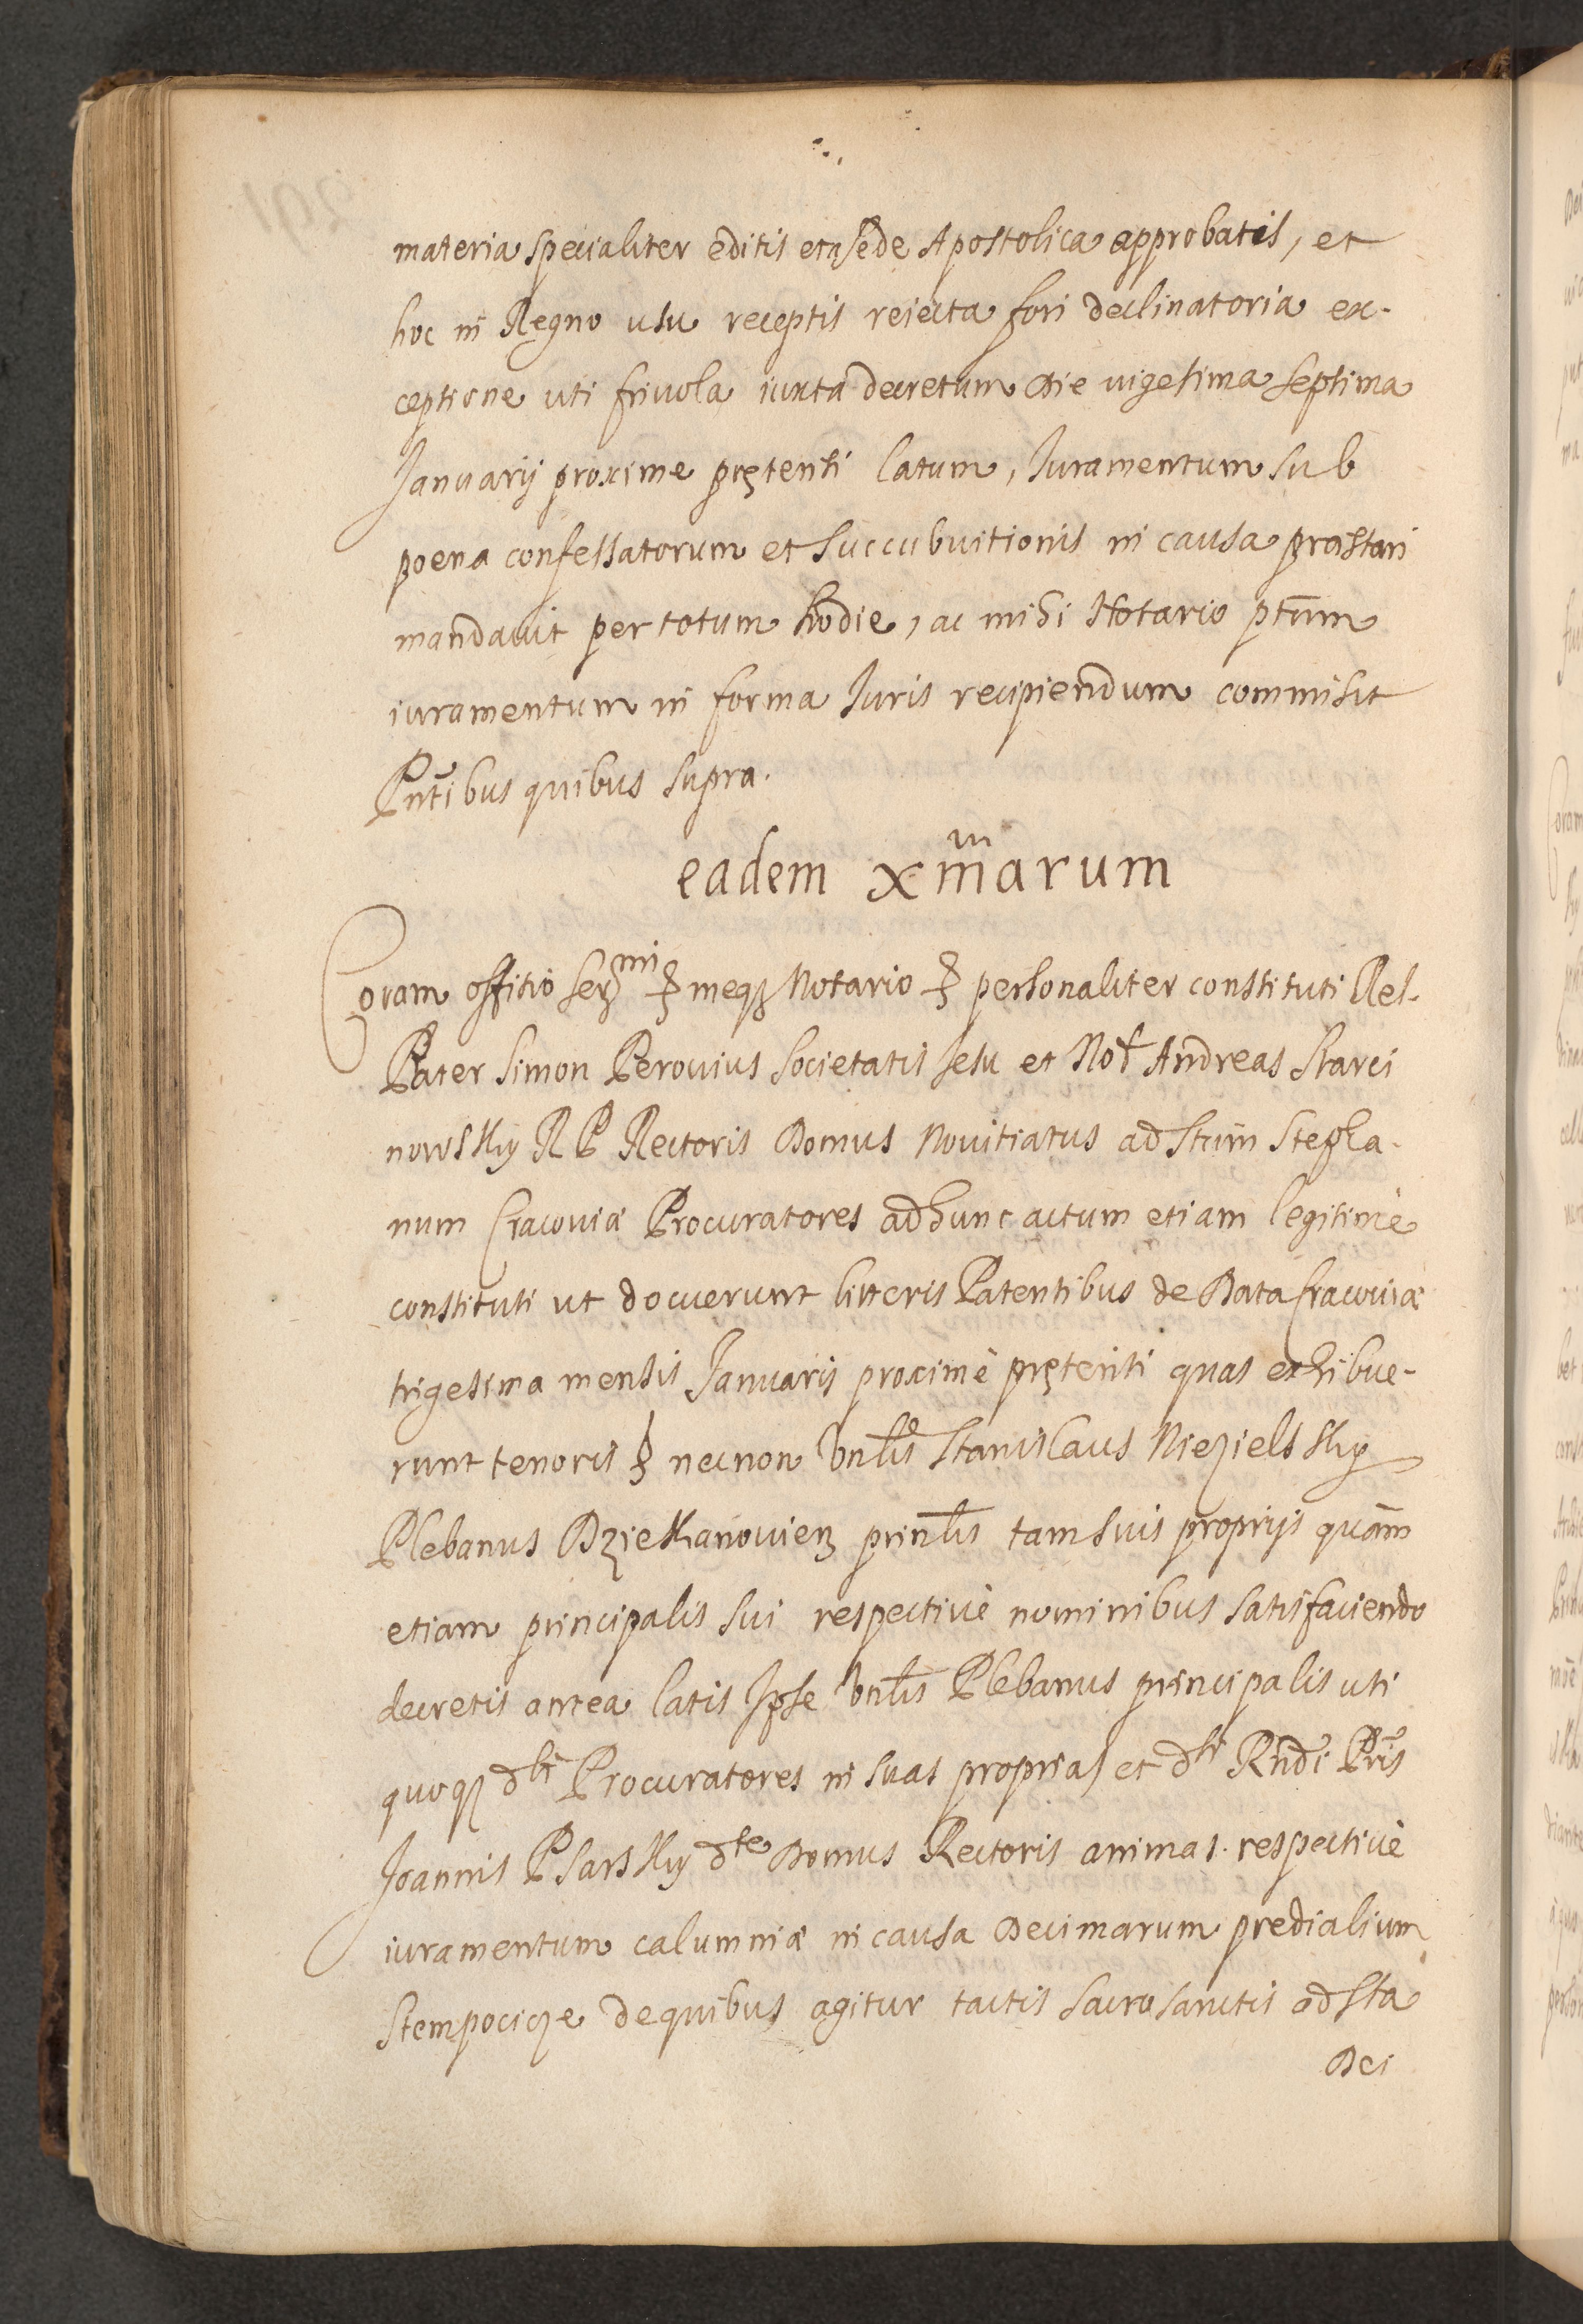 materia specialiter editis et a sede Apostolica approbatis, et
hoc in Regno usu receptis reiecta fori declinatoria ex-
ceptione uti friuola iuxta decretum die uigesima septima
Januarij proxime pręteriti latum, Juramentum sub
poena confessatorum et succubuitionis in causa præstari
mandauit per totum hodie, ac mihi Notario ptūm
iuramentum in forma Juris recipiendum commisit
Pñtibus quibus supra.
eadem xm̃arum
Coram offitio meqꝫ Notario personaliter constituti Rel.
Pater Simon Perouius Societatis Jesu et Andreas Starci
nowsky R P Rectoris Domus Nouitiatus ad Stum Stepha-
num Cracouiæ Procuratores ad hunc actum etiam legitimè
constituti ut docuerunt litteris Patentibus de Data Cracouiæ
trigesima mensis Januarij proximè pręteriti quas exhibue-
runt tenoris necnon Vnlis Stanislaus Niezielsky
Plebanus Dziekanouien prinlis tam suis proprijs quàm
etiam principalis sui respectiuè nominibus satisfaciendo
decretis antea latis Ipse Vnlis Plebanus principalis uti
quoqꝫ dti Procuratores in suas proprias et dti Rñdi Pris
Joannis Psarsky dte Domus Rectoris animas respectiuè
iuramentum calumniæ in causa Decimarum predialium
Stempocicze de quibus agitur tactis sacrosanctis ad Sta
Dei
291